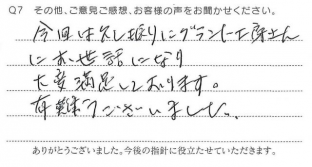 Q7 その他、ご意見ご感想、お客様の声をお聞かせください。
今回は久し振りにグランド工房さん
にお世話になり
大変満足しております。
有難うございました。
ありがとうございました。今後の指針に役立たせていただきます。